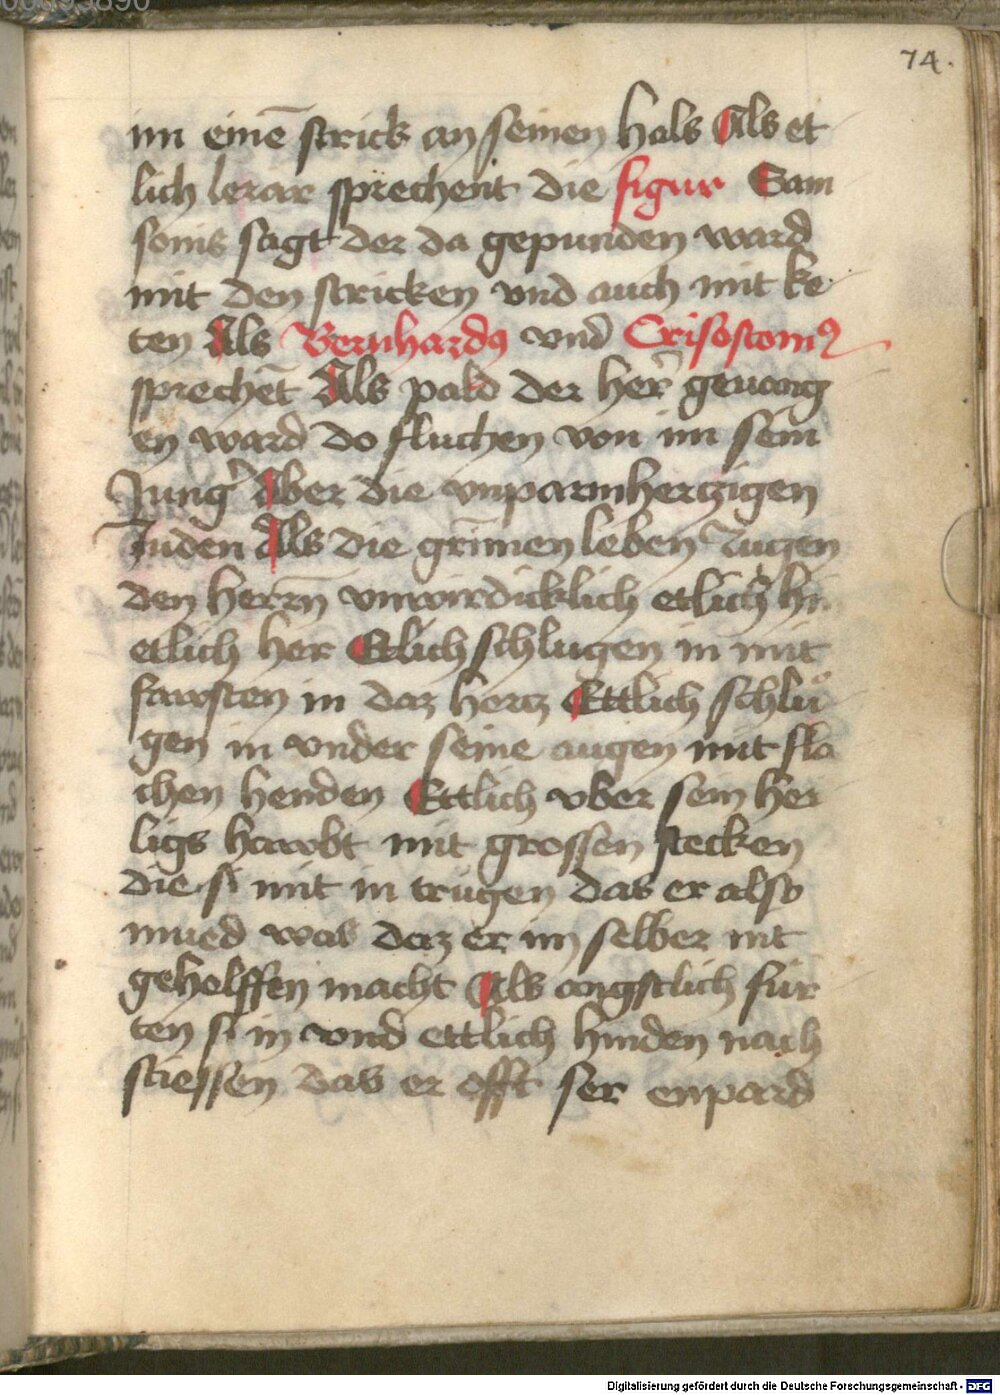 74.
im einē strick an seinen hals Als et
lich lerar sprechent die figur Sam
sonis sagt der da gepunden ward
mit den stricken vnd auch mit ke
ten Als Bernhardꝯ vnd Crisostomꝯ
sprechēt Als pald der her̄ geuang
en ward do fluchen von im sein
Jung̾ Aber die vnparmhertzigen
Juden Als die gri̅men leben zugen
den herrn̄ vnwirdicklich etlich hin
etlich her Etlich schlugen in mit
fawsten in daz hertz Ettlich schlu
gen in vnder seine augen mit fla
chen henden Ettlich vber sein hei
ligs hawbt mit grossen stecken
die si mit in trugen das er also
mued was daz er im selber nit
gehelffen macht Als angstlich für
ten si in vnd ettlich hinden nach
stiessen das er offt ser enpard
Digitalisierung gefördert durch die Deutsche Forschungsgemeinschaft - DFG